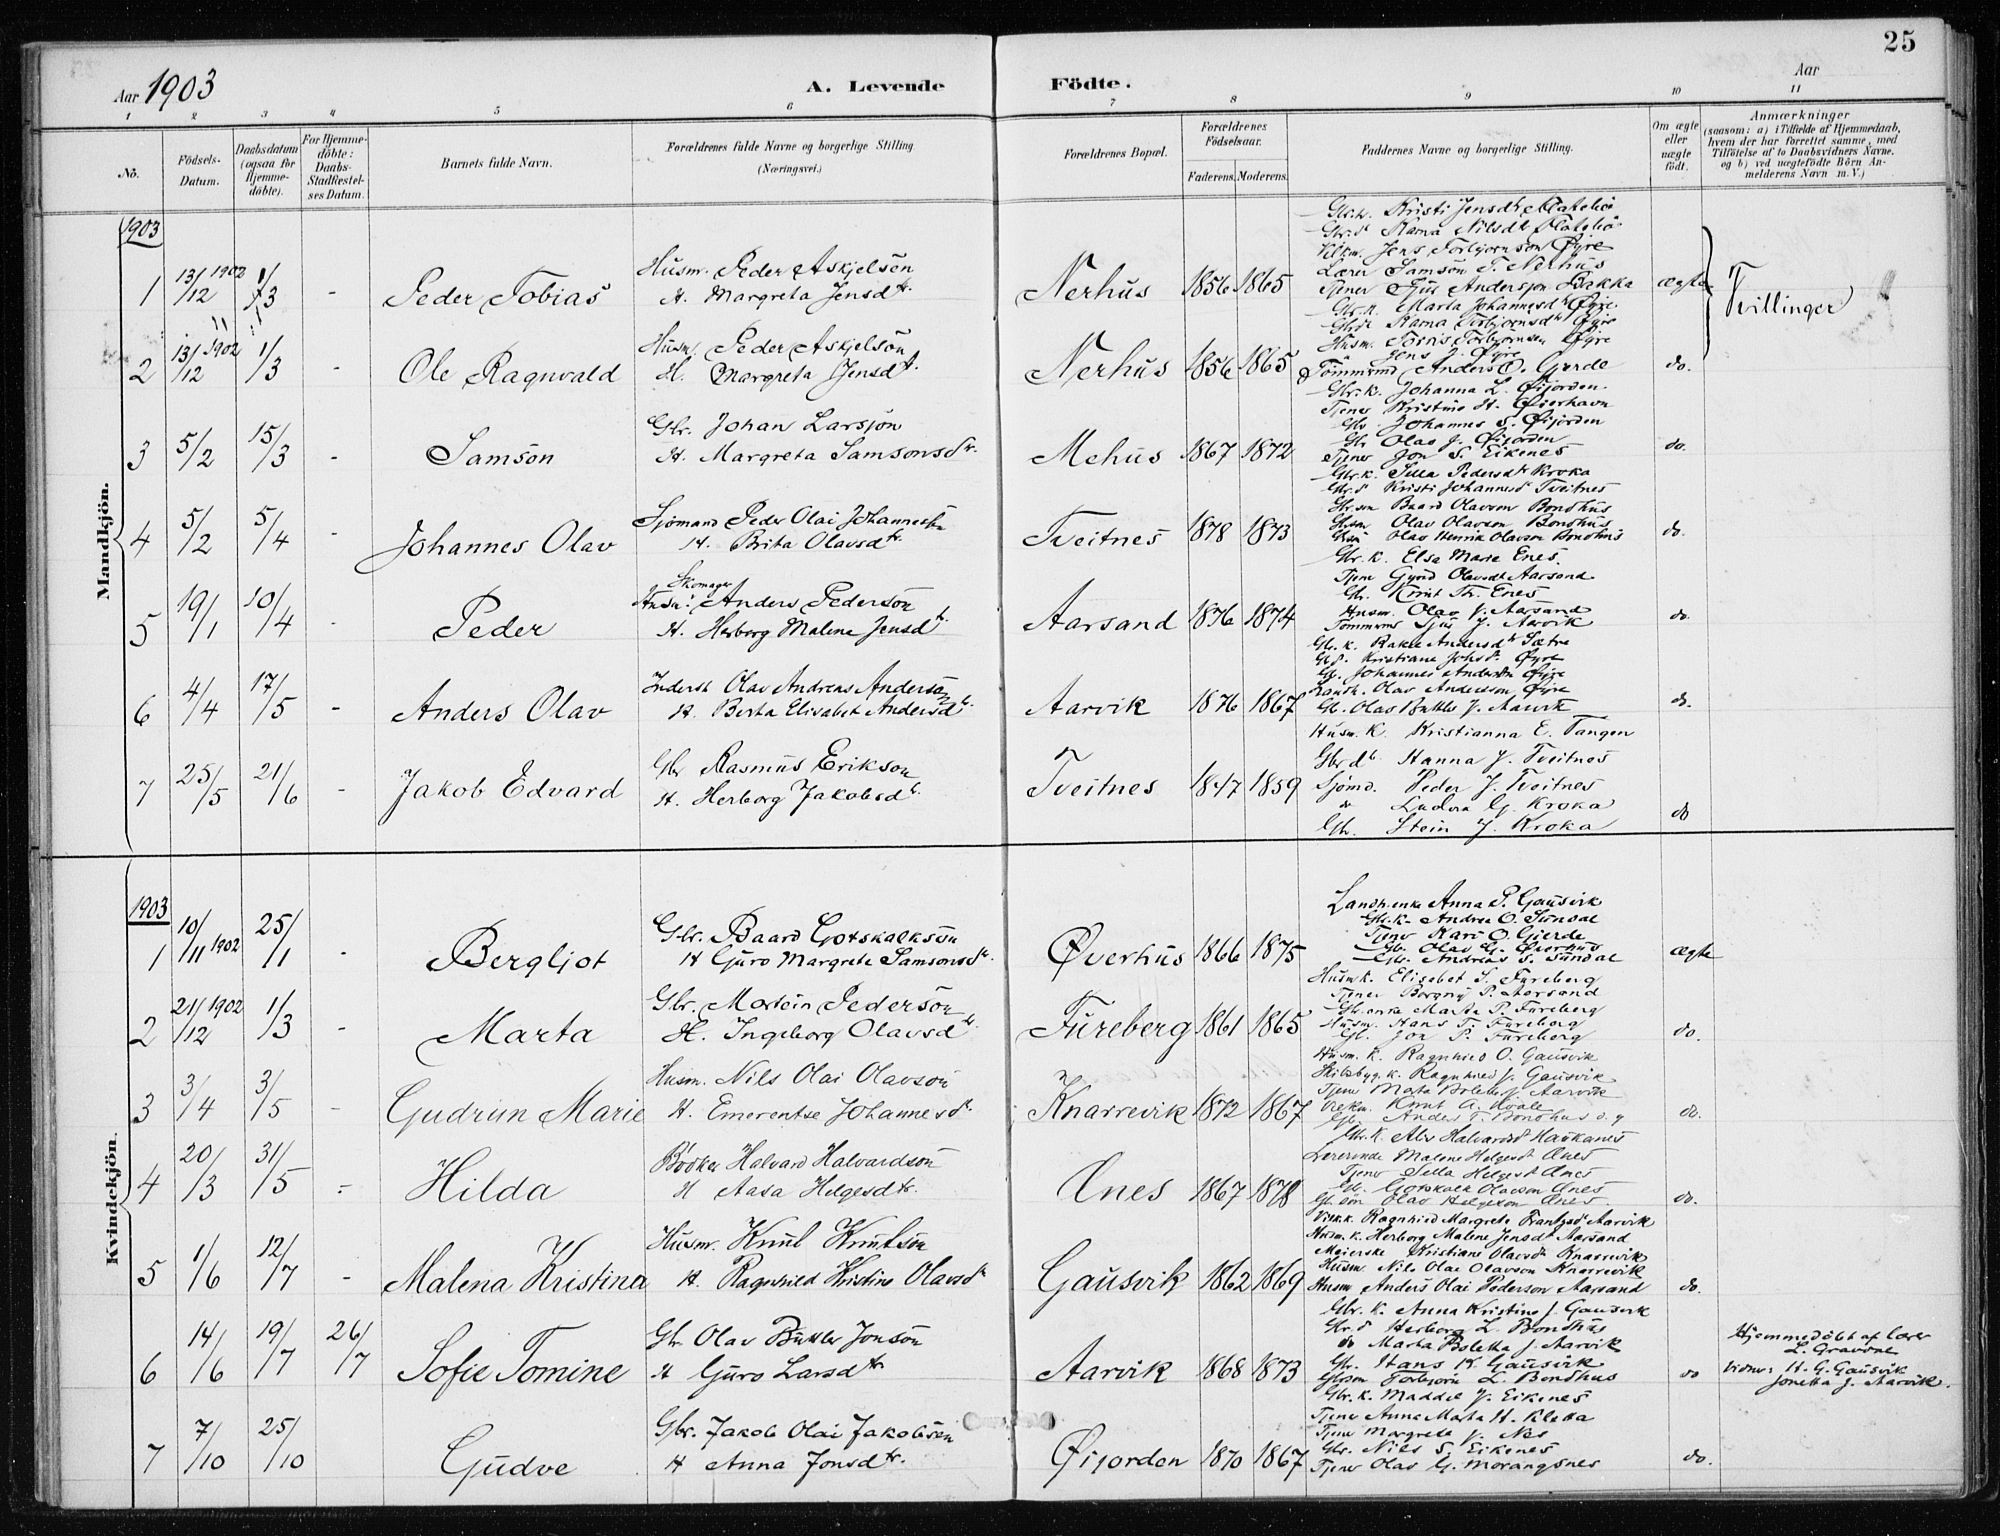 25
Aar 1903
A. Levende Födte.
Aar
1 2 3 4 5 6 7 8 9 10 11
No.
Födsels-Datum.
Daabsdatum (ogsaa för Hjemmedöbte).
For Hjemmedöbte: Daabs-Stadfæstelses Datum.
Barnets fulde Navn.
Forældrenes fulde Navne og borgerlige Stilling. (Næringsvei.)
Forældrenes Bopæl.
Forældrenes Födselsaar.
Faderens. Moderens.
Faddernes Navne og borgerlige Stilling.
Om ægte eller uægte født.
Anmærkninger
(saasom: a) i Tilfælde af Hjemmedaab, hvem der har forrettet samme, med Tilföielse af to Daabsvidners Navne. og b) ved uægtefödte Börn Anmelderens Navn m. V.)
Mandkjön.
1903
1 13/12 1902 1/3 - Peder Tobias
Husm. Peder Askjelsön
H. Margreta Jensdtr.
Nerhus 1856 1865
Kristi Jensdtr
Lærer Samson T. Nerhus
Tjener Gjus Anderson Bakka
ægte
Tvillinger
2 13/12 1902 1/3 - Ole Ragnvald
Husm. Peder Askjelsön
H. Margreta Jensdtr.
Nerhus 1856 1865
Jens J. Øyre
Anders O. Gjerde
do.
3 5/2 15/3 - Samson
Gbr. Johan Larsson
H. Margreta Samsonsdtr.
Mehus 1867 1872
Gbr. k. Johanna L. Øijorden
Gbr. Johannes S. Øijorden
Gbr Olav J. Øijorden
Tjener Jon S. Eikenes
do.
4 5/2 5/4 - Johannes Olav
Sjömand Peder Olai Johannessen
H. Brita Olavsdtr.
Tveitnes 1878 1873
Gbr. k. Sella Pedersdtr Kroka
Gbr. d Kristi Johannesd Tveitnes
Gbr. søn Baard Olavson Bondhus
Gbr. søn Olav Olavson Bondhus
Olav Henrik Olavson Bondhus
do.
5 19/1 10/4 - Peder
Skomager
Husm. Anders Pederson
H. Herborg Malene Jensdtr.
Aarsand 1876 1874
Gbr. k. Elsa Marie Enes
Tjener Gyrid Olavsdtr Aarsand
Gbr. Knut Enes
Husm. Olav J. Aarsand
do.
6 4/4 17/5 - Anders Olav
Inderst Olav Andreas Anderson
H. Berta Elisabet Andersdtr.
Aarvik 1876 1867
Gbr. k. Rakel Andersdtr Sætre
Gbr. Johannes Anderson Øyre
Olav Anderson Øyre
do.
7 25/5 21/6 - Jakob Edvard
Gbr Rasmus Erikson
H. Herborg Jakobsdtr.
Tveitnes 1847 1859
Husm. K. Kristianna E. Tangen
Gbr dtr. Hanna J. Tveitnes
Sjömd. Peder J. Tveitnes
Gbr. Stein J. Kroka
do
Kvindekjön.
1903
1 10/11 1902 25/1 - Bergljot
Gbr. Baard Gotskalkson
H Guro Margrete Samsonsdtr.
Øverhus 1866 1875
Anna P. Gausvik
Gbr. k. Andrea O. Sundal
Tjener Kari O. Gjerde
Gbr. Olav G. Øverhus
Gbr. Andreas S. Sundal
ægte
2 21/12 1902 1/3 - Marta
Gbr. Mortein Pederson
H. Ingeborg Olavsdtr.
Fureberg 1861 1865
Husmk. Elisabet S. Fureberg
Tjener Borgny P. Aarsand
Gbr. enke Marta P. Fureberg
Husm. Hans T. Fureberg
Gbr. Jon P. Fureberg
do.
3 3/4 3/5 - Gudrun Marie
Husm. Nils Olai Olavson
H. Emerentse Johannesdtr.
Knarrevik 1872 1867
Husm. K. Ragnhild O. Gausvik
Skibsbyg. k. Ragnhild J. Gausvik
Knut A. Hoale
do.
4 20/3 31/5 - Hilda
Bødker Halvard Halvardson
H Aasa Helgesdtr.
Ænes 1867 1878
Gbr. K. Halvardsd Haukanes
Lærerinde Malene Helgesd Ænes
Tjener Sella Helgesd Ænes
Gbr. Gotskalk Olavson Ænes
Gbr. søn Olav Helgeson Ænes
do.
5 1/6 12/7 - Malena Kristina
Husm. Knut Knutson
H. Ragnhild Kristine Olavsdtr
Gausvik 1862 1869
Ragnhild Margrete Frantzsd Aarvik
Husm. k. Herborg Malene Jensdtr Aarsand
Meierske Kristiane Olavsdtr Knarrevik
Husm Nils Olai Olavson Knarrevik
Husm Anders Olai Pederson Aarsand
do.
6 14/6 19/7 26/7 Sofie Tomine
Gbr Olav Buttler Jonson
H Guro Larsdtr.
Aarvik 1868 1873
Gbr. k. Anna Kristine J. Gausvik
Gbr. d Herborg L. Bondhus
do Marta Boletta J. Aarvik
Gbr. Hans K. Gausvik
Gbr. søn Torbjørn L. Bondhus
do
Hjemmedöbt af Lærer
L. Gravdal
Vidner: H. G. Gausvik
Jonetta J. Aarvik.
7 7/10 25/10 Gudve
Gbr. Jakob Olai Jakobsen
H Anna Jonsdtr.
Øijorden 1870 1867
Gbr. k. Maddel J. Eikenes
Tjener Anna Marta H. Kletta
Tjener Margrete J. Nes
Gbr. Nils S. Eikenes
Tjener Olav G. Morangsnes
do.